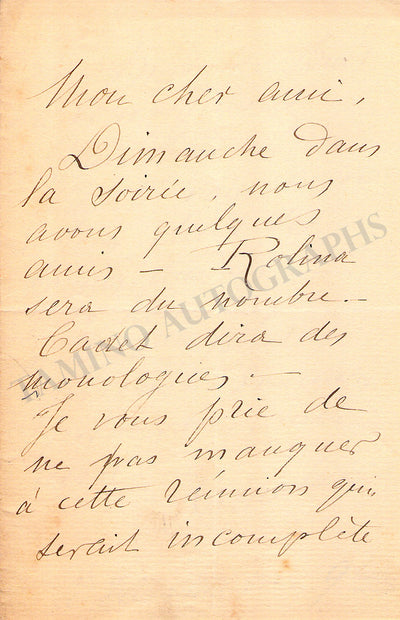 Mon cher ami,
Dimanche dans
la soirée, nous
avons quelques
amis — Rolina
sera du nombre. —
Cadet dira des
monologues —
Je vous prie de
ne pas manquer
à cette réunion qui
serait incomplète
TAMINO AUTOGRAPHS